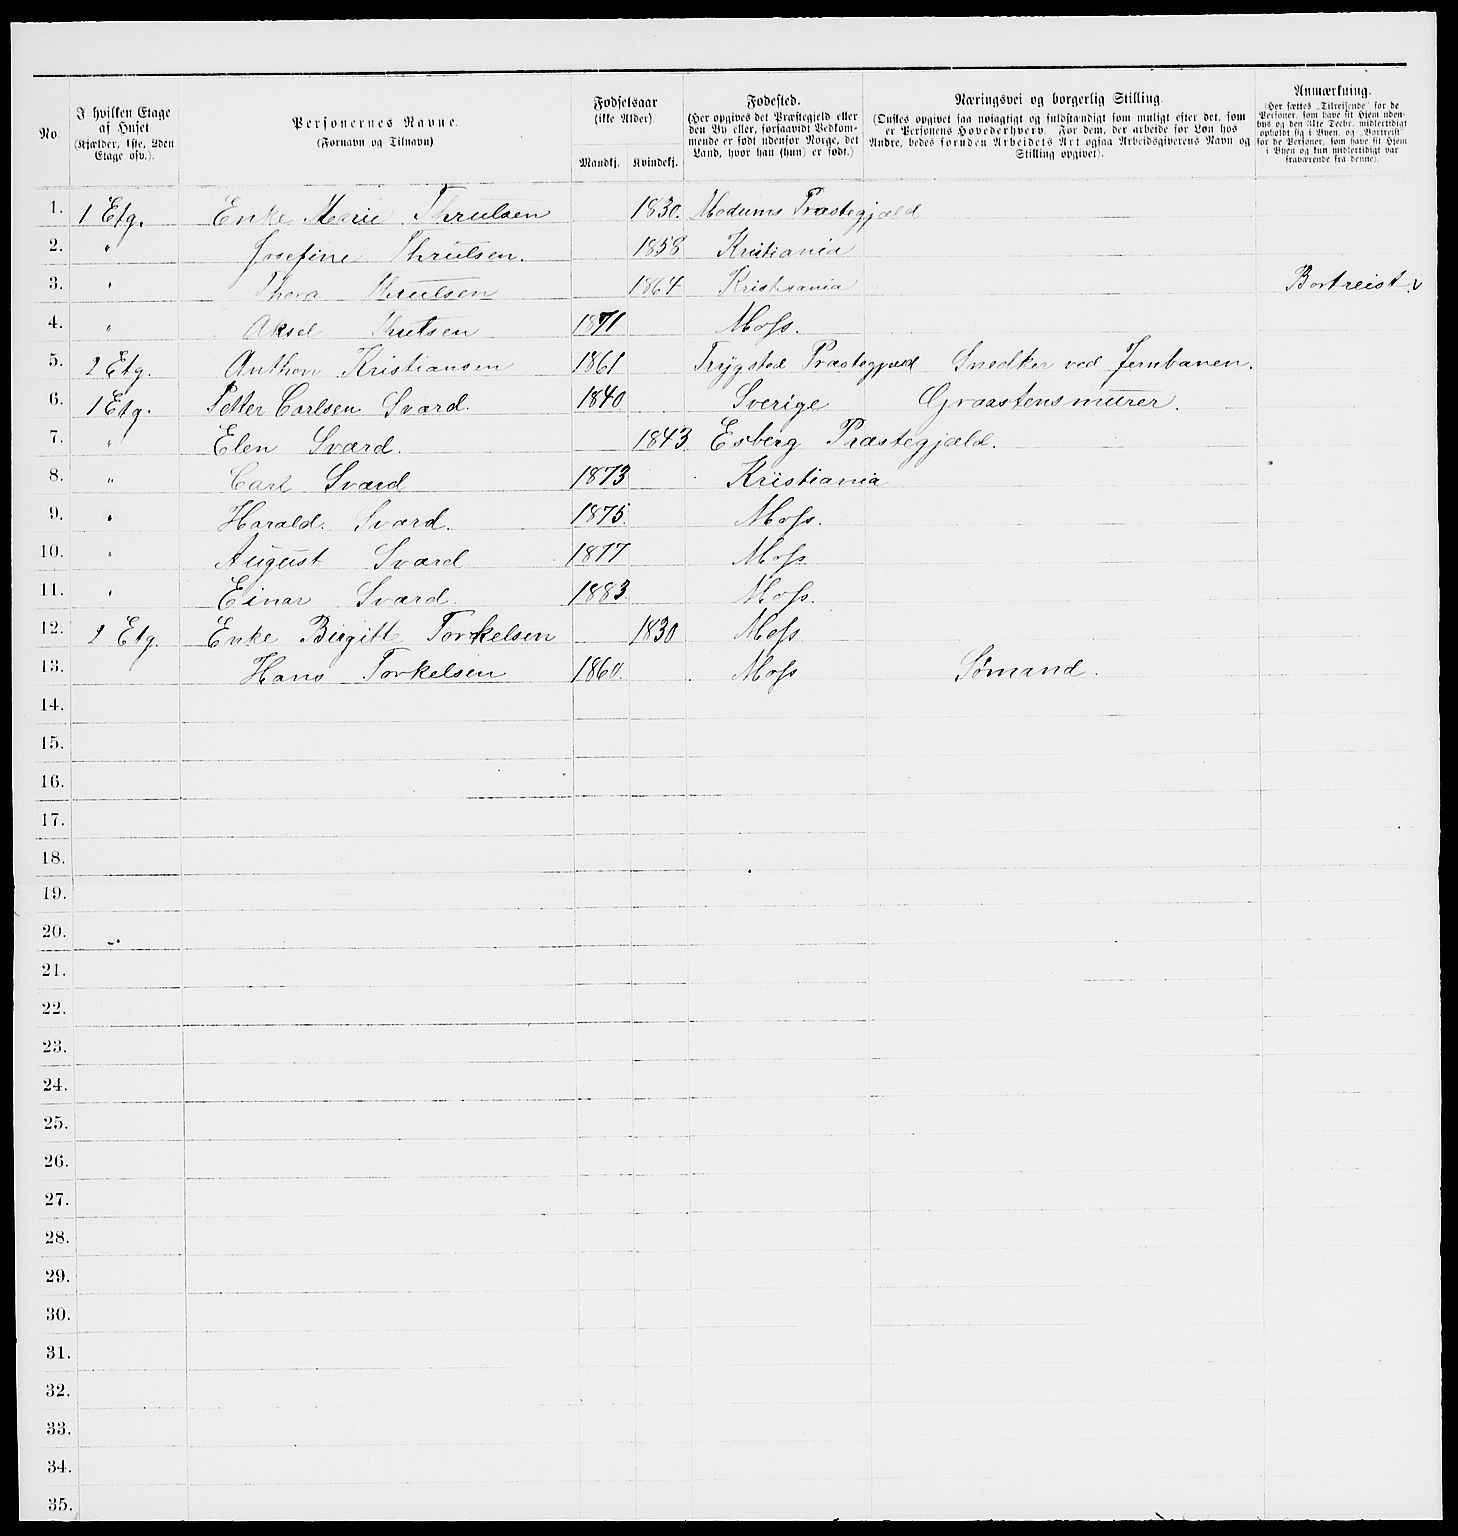 No.
I hvilken Etage af Huset (Kjælder, 1ste, 2den Etage osv.).
Personernes Navne. (Fornavn og Tilnavn)
Fødselsaar (ikke Alder). Mandkj. Kvindekj.
Fødested. (Her opgives det Præstegjeld eller den By eller, forsaavidt Vedkommende er født udenfor Norge, det Land, hvor han (hun) er født.)
Næringsvei og borgerlig Stilling. (Ønskes opgivet saa nøiagtigt og fuldstændigt som muligt efter det, som er Personens Hovederhverv. For dem, der arbeide for Løn hos Andre, bedes foruden Arbeidets Art ogsaa Arbeidsgiverens Navn og Stilling opgivet).
Anmærkning. (Her sættes „Tilreisende" for de Personer, som have sit Hjem udenbys og den 31te Decbr. midlertidigt opholdt sig i Byen, og „Bortreist" for de Personer, som have sit Hjem i Byen og kun midlertidigt var fraværende fra denne).
1. 1 Etg. Enke Marie Thrulsen 1830. Modums Præstegjæld
2. " Josefine Thrulsen. 1858 Kristiania
3. " Thora Thrulsen 1864 Kristiania Bortreist. v
4. " Aksel Thrulsen 1871 Moss.
5. 2 Etg. Anthon Kristiansen 1861 Trygstad Præstegjæld Snedker ved Jernbanen.
6. 1 Etg. Petter Carlsen Sværd. 1840 Sverige Graastensmurer.
7. " Elen Sværd. 1843 Esberg Præstegjæld.
8. " Carl Sværd 1873 Kristiania
9. " Harald. Sværd. 1875 Moss.
10. " August Sværd 1877 Moss
11. " Einar Sværd 1883 Moss.
12. 2 Etg. Enke Birgitte Torkelsen 1830 Moss
13. Hans Torkelsen 1860. Moss Sømand.
14.
15.
16.
17.
18.
19.
20.
21.
22.
23.
24.
25.
26.
27.
28.
29.
30.
31.
32.
33.
34.
35.